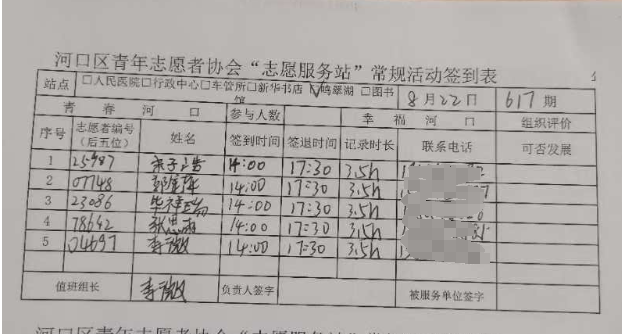 河口区青年志愿者协会“志愿服务站”常规活动签到表
站点 □人民医院□行政中心□车管所□新华书店☑鸣翠湖□图书馆 8月22日 617期
青春河口 参与人数 幸福河口 组织评价
序号 志愿者编号(后五位) 姓名 签到时间 签退时间 记录时长 联系电话 可否发展
1 25987 14:00 17:30 3.5h
2 07748 14:00 17:30 3.5h
3 23086 14:00 17:30 3.5h
4 78642 张思雨 14:00 17:30 3.5h
5 04697 李微 14:00 17:30 3.5h
值班组长 李微 负责人签字 被服务单位签字
河口区青年志愿者协会“志愿服务站”常